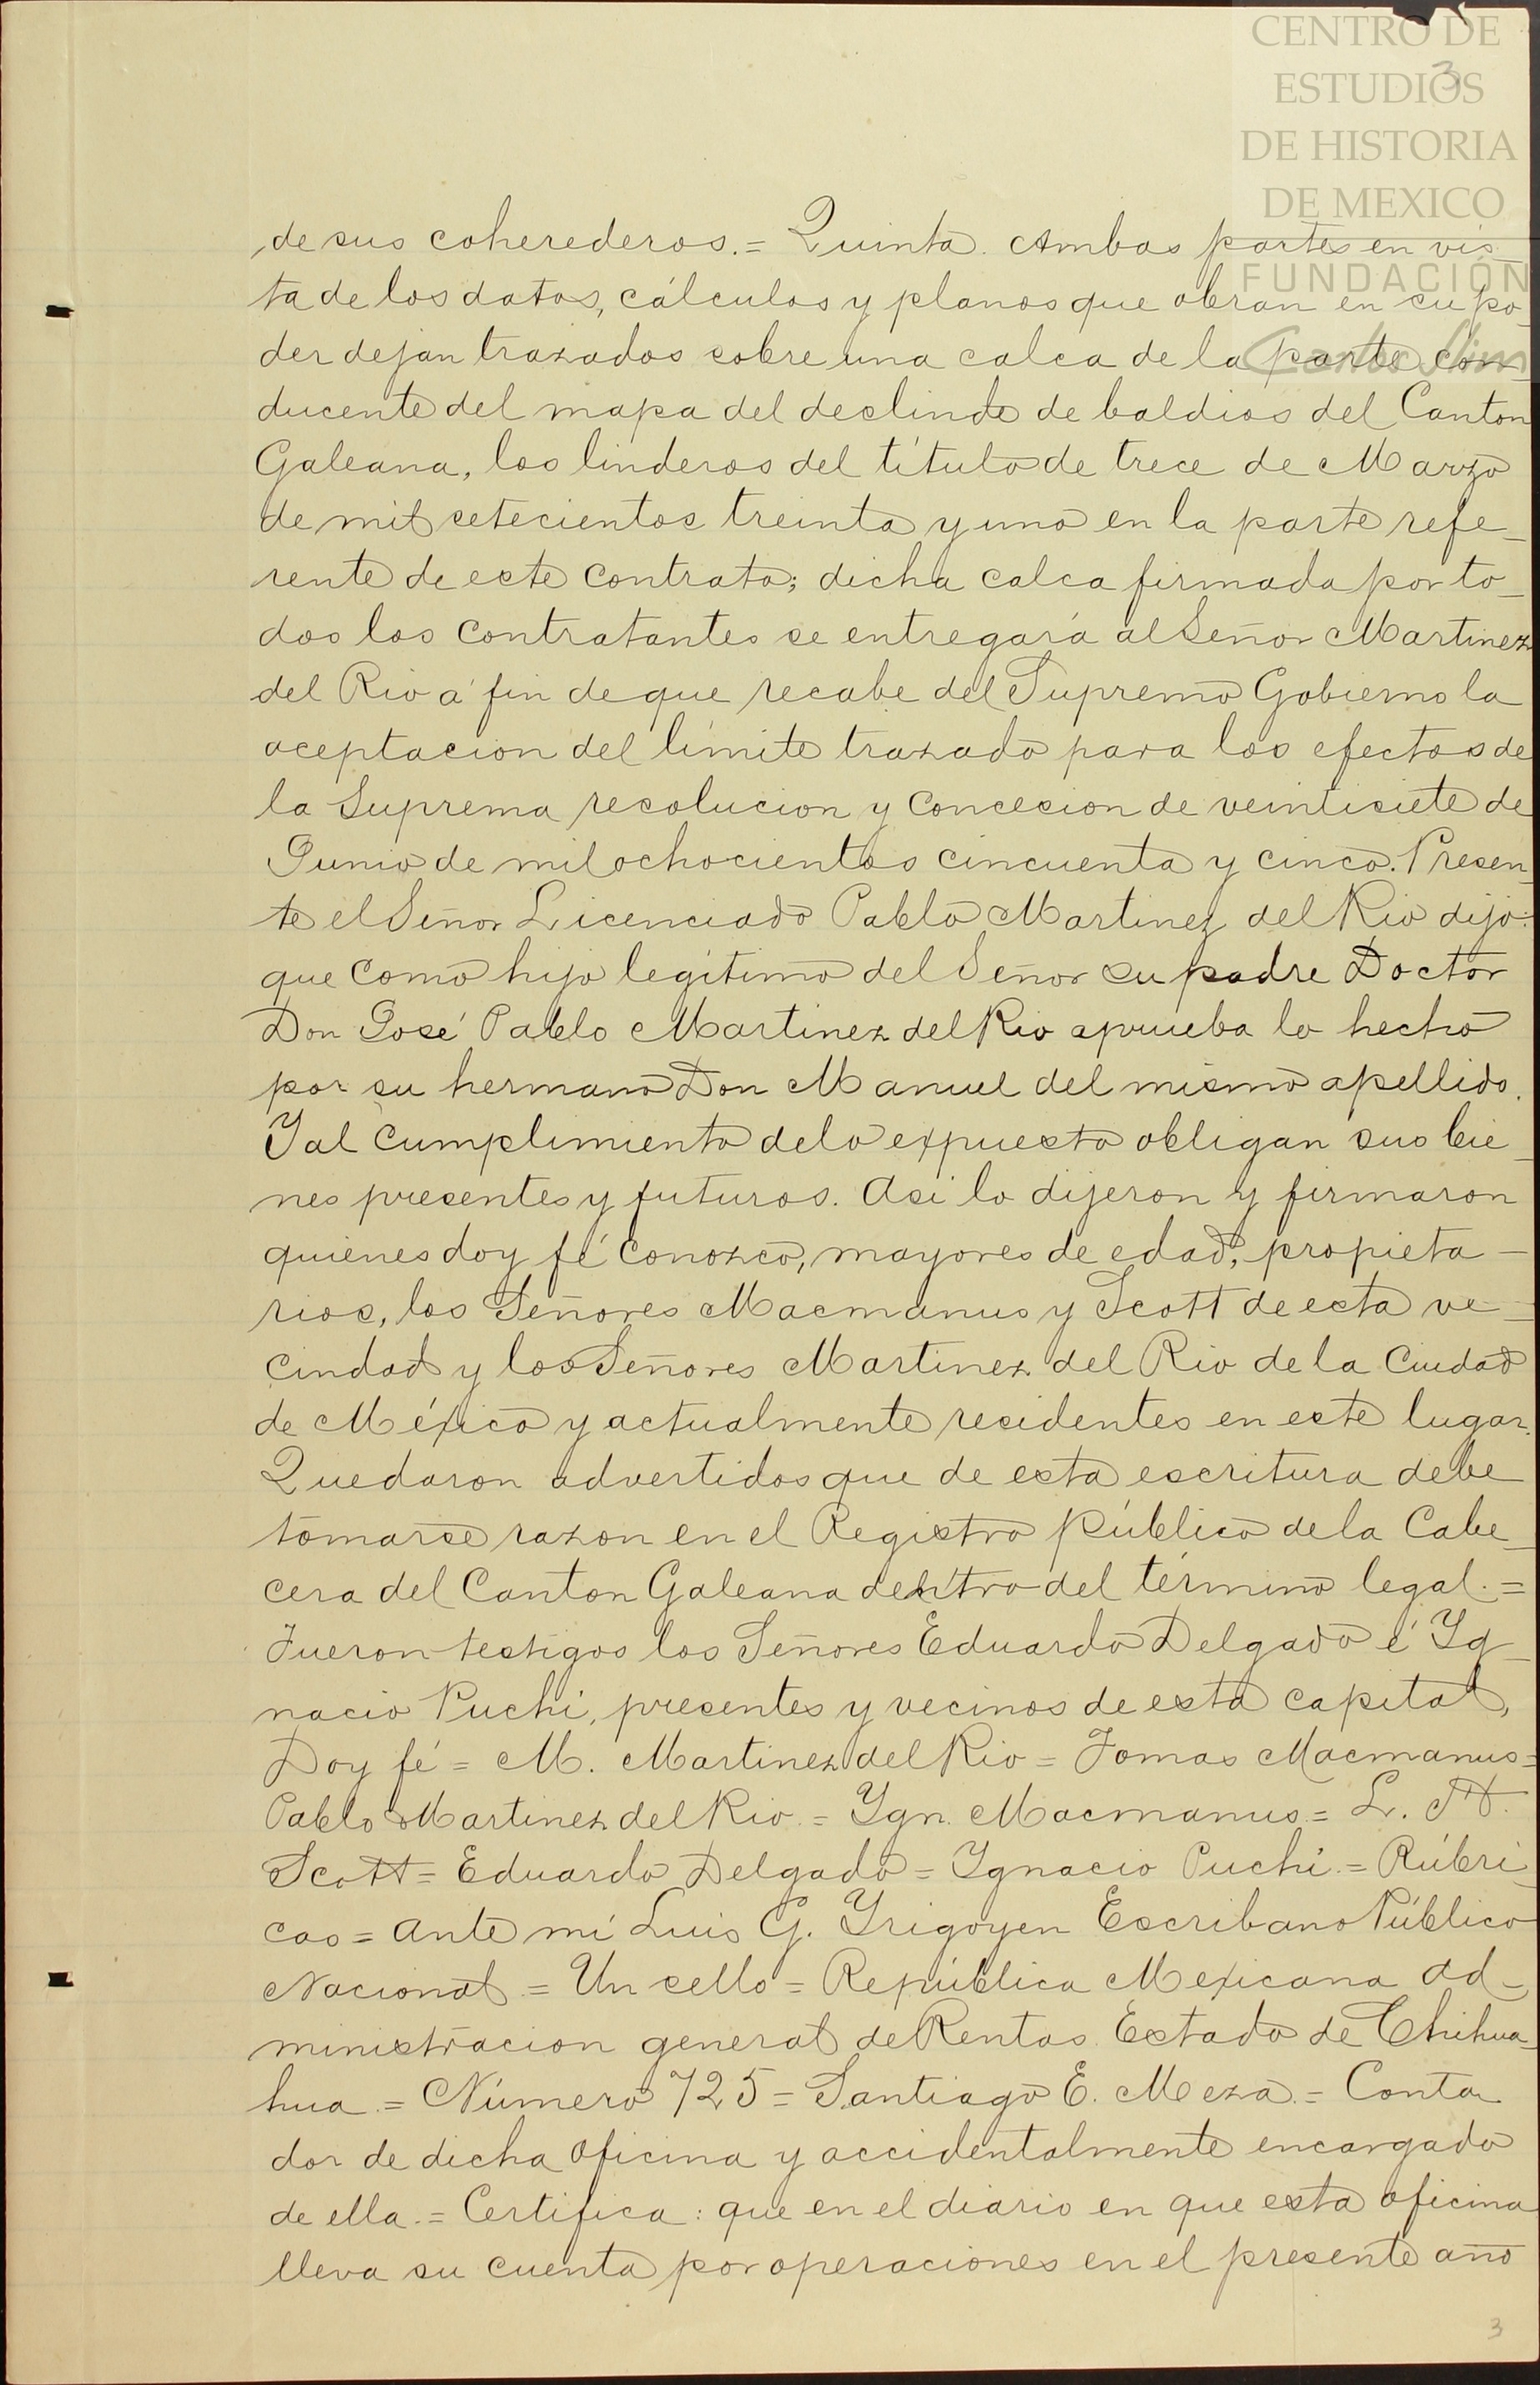 CENTRO DE
ESTUDIOS
DE HISTORIA
DE MEXICO
FUNDACIÓN
Carlos Slim
3
de sus coherederos.= Quinta. Ambas partes en vis_
ta de los datos, cálculos y planos que obran en su po_
der dejan trazados sobre una calca de la parte con_
ducente del mapa del deslinde de baldios del Canton
Galeana, los linderos del título de trece de Marzo
de mil setecientos treinta y uno en la parte refe_
rente de este contrato; dicha calca firmada por to_
dos los contratantes se entregará al Señor Martinez
del Rio á fin de que recabe del Supremo Gobierno la
aceptacion del límite trazado para los efectos de
la Suprema resolucion y concesion de veintisiete de
Junio de mil ochocientos cincuenta y cinco. Presen_
te el Señor Licenciado Pablo Martinez del Rio dijo:
que como hijo legítimo del Señor su padre Doctor
Don José Pablo Martinez del Rio aprueba lo hecho
por su hermano Don Manuel del mismo apellido.
Y al cumplimiento de lo expuesto obligan sus bie_
nes presentes y futuros. Asi lo dijeron y firmaron
quienes doy fé conozco, mayores de edad, propieta_
rios, los Señores Macmanus y Scott de esta ve_
cindad y los Señores Martinez del Rio de la Ciudad
de México y actualmente residentes en este lugar.
Quedaron advertidos que de esta escritura debe
tomarse razon en el Registro Público de la Cabe_
cera del Canton Galeana dentro del término legal.=
Fueron testigos los Señores Eduardo Delgado é Yg_
nacio Puchi, presentes y vecinos de esta capital,
Doy fé = M. Martinez del Rio = Tomas Macmanus=
Pablo Martinez del Rio.= Ygn. Macmanus.= L. H.
Scott= Eduardo Delgado= Ygnacio Puchi.= Rúbri_
cas= Ante mi Luis G. Yrigoyen Escribano Público
Nacional.= Un sello= República Mexicana Ad_
ministracion general de Rentas. Estado de Chihua_
hua.= Número 725= Santiago E. Meza.= Conta_
dor de dicha Oficina y accidentalmente encargado
de ella.= Certifica: que en el diario en que esta oficina
lleva su cuenta por operaciones en el presente año
3